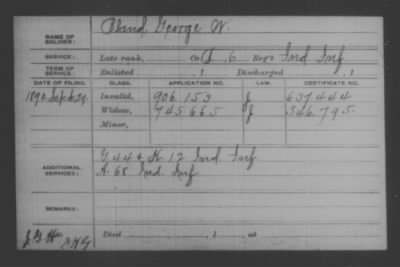 NAME OF SOLDIER: Bland George W.
SERVICE: Late rank, Co. I, 6 Reg't Ind. Inf.
TERM OF SERVICE: Enlisted , 1 Discharged , 1
DATE OF FILING. CLASS. APPLICATION NO. LAW. CERTIFICATE NO.
Invalid, 906.153 J 637.444
Widow, 745.665 J 546.795
Minor,
ADDITIONAL SERVICES: G 44 & K 12 Ind. Inf.
K. 68 Ind. Inf.
REMARKS:
Died , 1 , at